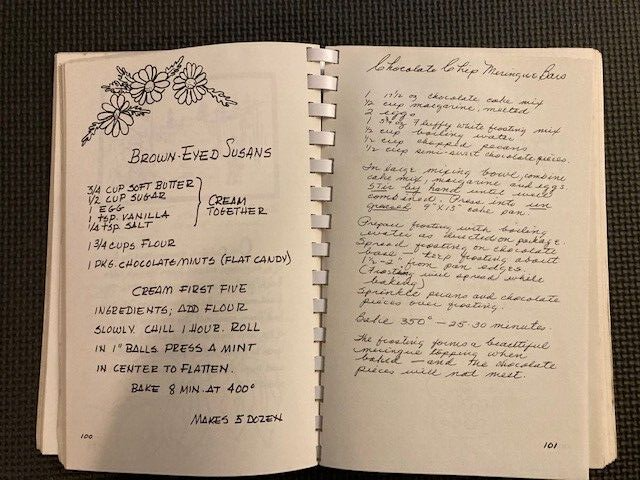 Brown-Eyed Susans
3/4 cup soft butter
1/2 cup sugar
1 egg
1 tsp. vanilla
1/4 tsp. salt
Cream together
1 3/4 cups flour
1 pkg. chocolate mints (flat candy)
Cream first five
ingredients; add flour
slowly. Chill 1 hour. Roll
in 1" balls. Press a mint
in center to flatten.
Bake 8 min. at 400°
Makes 5 dozen
100
Chocolate Chip Meringue Bars
1 17 1/2 oz chocolate cake mix
1/2 cup margarine, melted
2 eggs
1 5 3/4 oz fluffy white frosting mix
1/2 cup boiling water
1/2 cup chopped pecans
1/2 cup semi-sweet chocolate pieces.
In large mixing bowl, combine
cake mix, margarine and eggs
stir by hand until well
combined. Press into un
greased 9"x13" cake pan.
Prepare frosting with boiling
water as directed on package.
Spread frosting on chocolate
base - keep frosting about
from pan edges.
(Frosting will spread while
baking)
Sprinkle pecans and chocolate
pieces over frosting.
Bake 350° - 25-30 minutes.
The frosting forms a beautiful
meringue topping when
baked - and the chocolate
pieces will not melt.
101